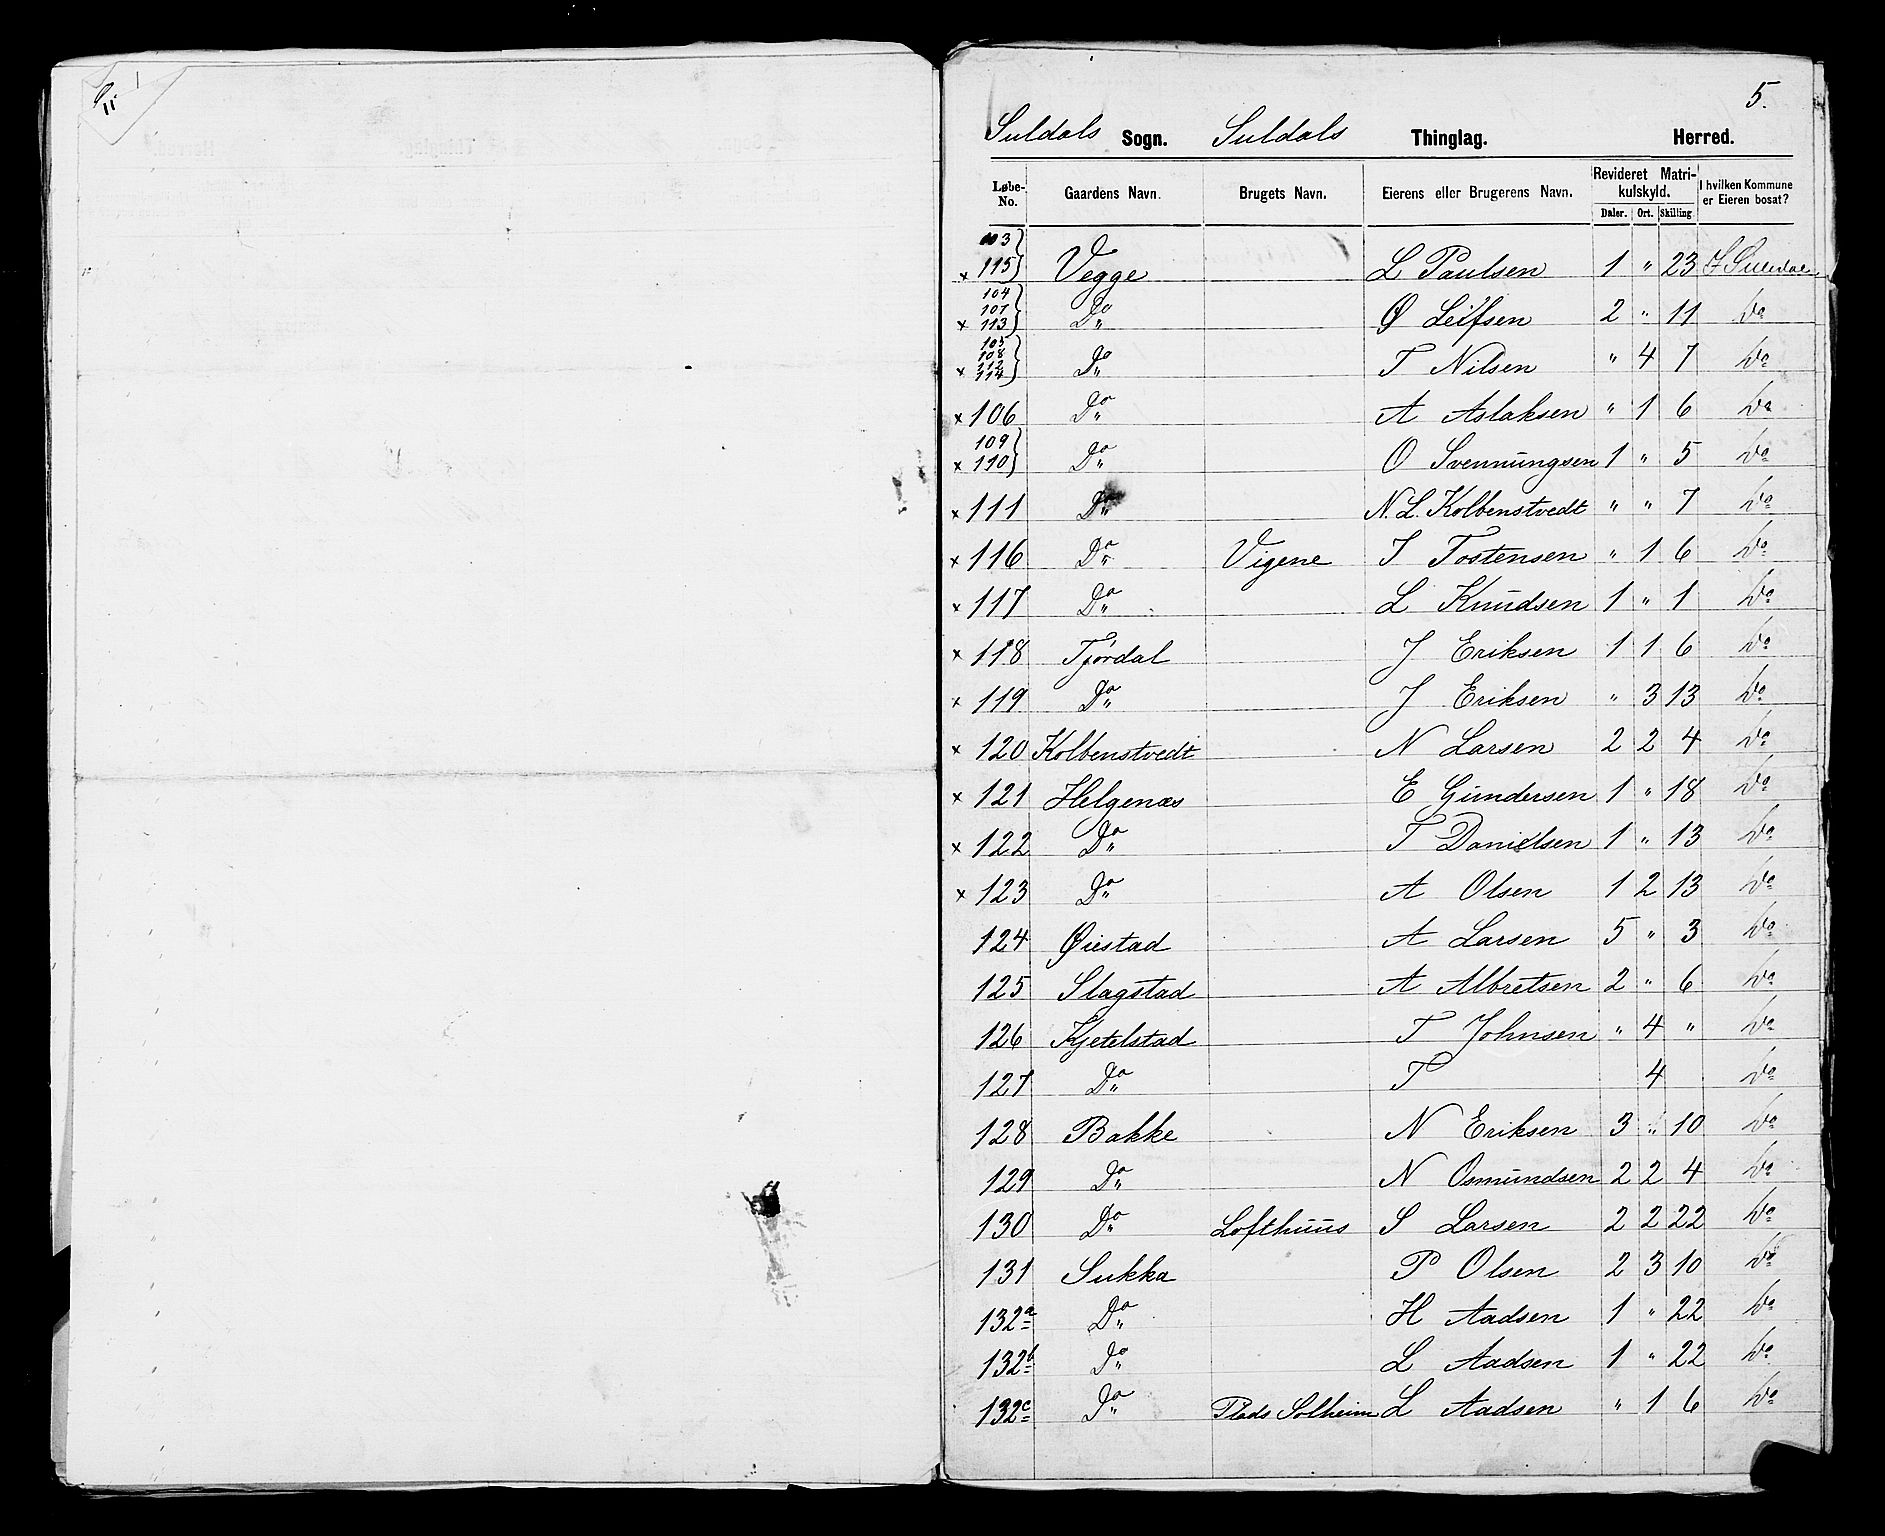 5.
Suldals Sogn. Suldals Thinglag. Herred.
Løbe-No. Gaardens Navn. Brugets Navn. Eierens eller Brugerens Navn. Revideret Matrikulskyld. Daler. Ort. Skilling I hvilken Kommune er Eieren bosat?
103 } x 115 Vegge L Paulsen 1 " 23 I Suledal
104 107 x 113 } Do Ø Leifsen 2 " 11 Do
105 108 112 x 114 } Do T Nilsen " 4 7 Do
x 106 Do A Aslaksen " 1 6 Do
109 x 110 } Do O Svennungsen 1 " 5 Do
x 111 Do N. L. Kolbenstvedt " " 7 Do
x 116 Do Vigene T Tostensen " 1 6 Do
x 117 Do L Knudsen 1 " 1 Do
x 118 Tjørdal J Eriksen 1 1 6 Do
x 119 Do J Eriksen " 3 13 Do
x 120 Kolbenstvedt N Larsen 2 2 4 Do
x 121 Helgenæs E Gundersen 1 " 18 Do
x 122 Do T Danielsen 1 " 13 Do
x 123 Do A Olsen 1 2 13 Do
124 Øiestad A Larsen 5 " 3 Do
125 Slagstad A Albretsen 2 " 6 Do
126 Kjetelstad T Johnsen " 4 " Do
127 Do T 4 Do
128 Bakke N Eriksen 3 " 10 Do
129 Do N Osmundsen 2 2 4 Do
130 Do Lofthuus S Larsen 2 2 22 Do
131 Sukka P Olsen 2 3 10 Do
132a Do H Aadsen 1 " 22 Do
132b Do L Aadsen 1 " 22 Do
132c Do Plads Solheim L Aadsen " 1 6 Do